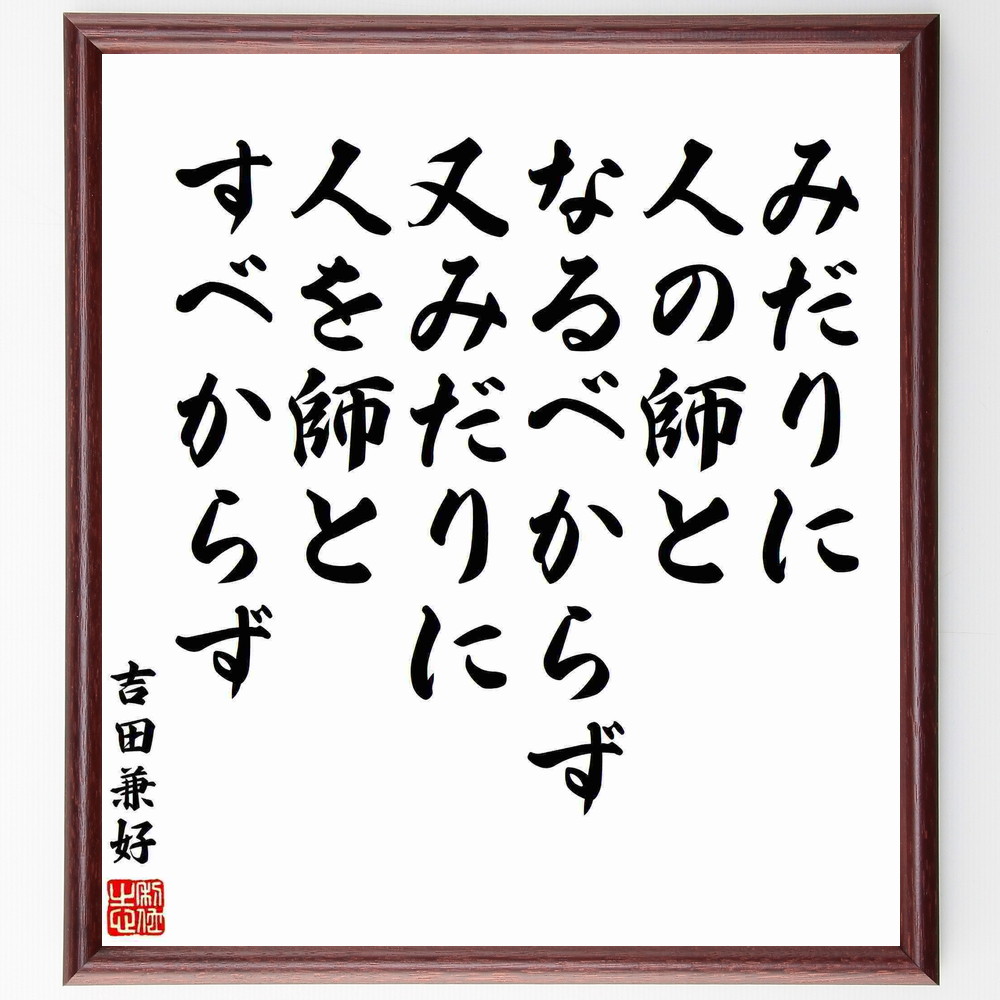 みだりに
人の師と
なるべからず
又みだりに
人を師と
すべからず
吉田兼好